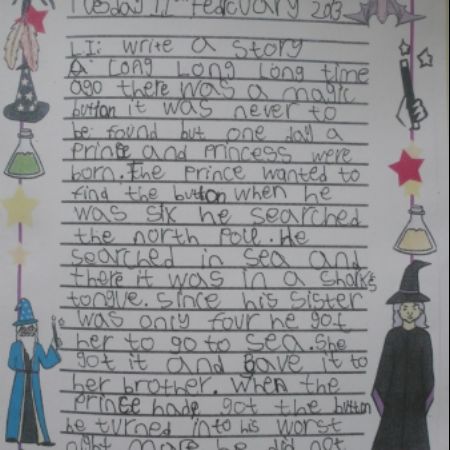 Tuesday 12th February 2013
LI: write a story
A long long long time
ago there was a magic
button it was never to
be found but one day a
Prince and Princess were
born. The Prince wanted to
find the button when he
was six he searched
the north Poll. He
searched in sea and
there it was in a sharks
tongue. Since his Sister
was only four he got
her to go to sea. She
got it and gave it to
her brother. When the
Prince hade got the button
he turned into his worst
night mare he did not